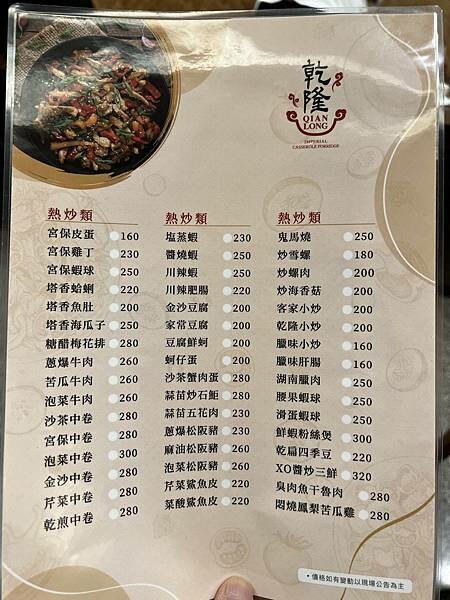 乾隆
QIAN LONG
IMPERIAL
CASSEROLE PORRIDGE
熱炒類
宮保皮蛋 160
宮保雞丁 230
宮保蝦球 250
塔香蛤蜊 220
塔香魚肚 200
塔香海瓜子 250
糖醋梅花排 280
蔥爆牛肉 260
苦瓜牛肉 260
泡菜牛肉 260
沙茶中卷 280
宮保中卷 280
泡菜中卷 300
金沙中卷 280
芹菜中卷 280
乾煎中卷 280
熱炒類
塩蒸蝦 230
醬燒蝦 250
川辣蝦 250
川辣肥腸 220
金沙豆腐 200
家常豆腐 200
豆腐鮮蚵 200
蚵仔蛋 200
沙茶蟹肉蛋 280
蒜苗炒石鮔 280
蒜苗五花肉 230
蔥爆松阪豬 230
麻油松阪豬 260
泡菜松阪豬 260
芹菜鯊魚皮 220
菜酸鯊魚皮 220
熱炒類
鬼馬燒 250
炒雪螺 180
炒螺肉 200
炒海香菇 200
客家小炒 200
乾隆小炒 200
臘味小炒 160
臘味肝腸 160
湖南臘肉 250
腰果蝦球 250
滑蛋蝦球 250
鮮蝦粉絲煲 300
乾扁四季豆 220
XO醬炒三鮮 320
臭肉魚干魯肉 280
悶燒鳳梨苦瓜雞 280
•價格如有變動以現場公告為主